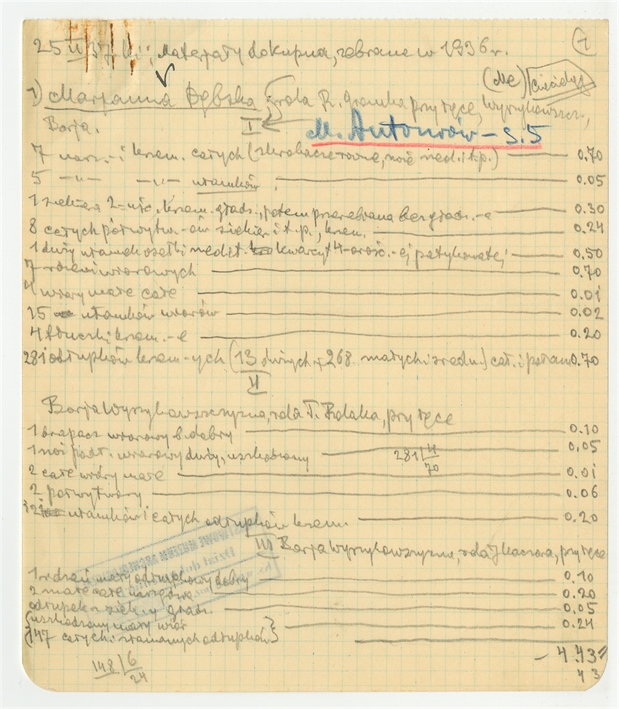 25 II 37 r.: Materjały dokupna, zebrane w 1936 r. 1
1) Marjanna Dębska; rola R. przy łące, Wyrzykowszcz., (Me)
Barja. I M. Antonów - s. 5
7 narz. i krzem. całych (skrobacze, noże ned. i t.p.) 0.70
5 -"- -"- ułamków. 0.05
1 siekiera 2-ścien. krzem. gładz., potem przerabiana bez gładz. -e 0.30
8 całych półwytw. -ów siekier i t.p., krzem. 0.24
1 duży ułamek osełki kwarcyt. 4-grość. -ej patykowatej 0.50
7 rdzeni wiórowych 0.70
4 wióry małe całe 0.01
25 ułamków wiórów 0.02
4 tłuczki krzem. -e 0.20
281 odłupków krzem-ych (13 dużych i 268 małych i średn.) cał. i połam. 0.70
II
Barja Wyrzykowszczyzna, rola T. przy łące
1 drapacz wiórowy b. dobry 0.10
1 nóż podł. wiórowy duży, uszkodzony 281 | 4 0,05
70
2 całe wióry małe 0.01
2 półwytwory 0.06
ułamków i całych odłupków krzem. 0.20
III Barja Wyrzykowszczyzna, rola J. Kaczora, przy łące
1 rdzeń mały odłupkowy dobry 0.10
2 małe całe narzędzia 0.20
odłupek z siekiery gładz. 0.05
{uszkodzony mały wiór } 0.24
{147 całych i złamanych odłupków}
- 4.43
148 | 6 4 3
24